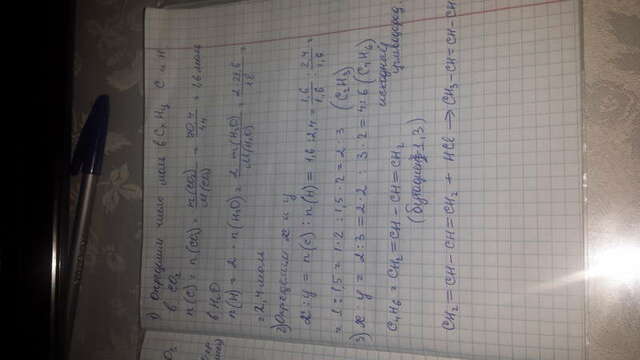 1) Определим число моль в CxHy C и H
в CO2
n(C) = n(CO2) = m(CO2)/M(CO2) = 70,4/44 = 1,6 моль
в H2O
n(H) = 2 · n(H2O) = 2·m(H2O)/M(H2O) = 2·21,6/18 =
= 2,4 моль
2) Определим x и y
x : y = n(C) : n(H) = 1,6 : 2,4 = 1,6/1,6 : 2,4/1,6 =
= 1 : 1,5 = 1·2 : 1,5·2 = 2 : 3 (C2H3)
3) x : y = 2 : 3 = 2·2 : 3·2 = 4:6 (C4H6)
исходный
углеводород
C4H6 = CH2=CH-CH=CH2
(бутадиен 1,3)
CH2=CH-CH=CH2 + HCl → CH3-CH=CH-CH